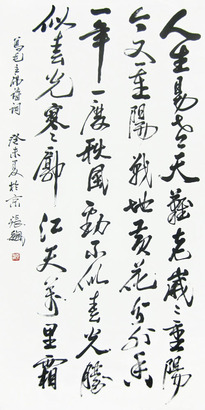 人生易老天難老歲々重陽
今又重陽戰地黃花分外香
一年一度秋風勁不似春光勝
似春光寥廓江天萬里霜
寫毛主席詩詞 癸未夏於京 張